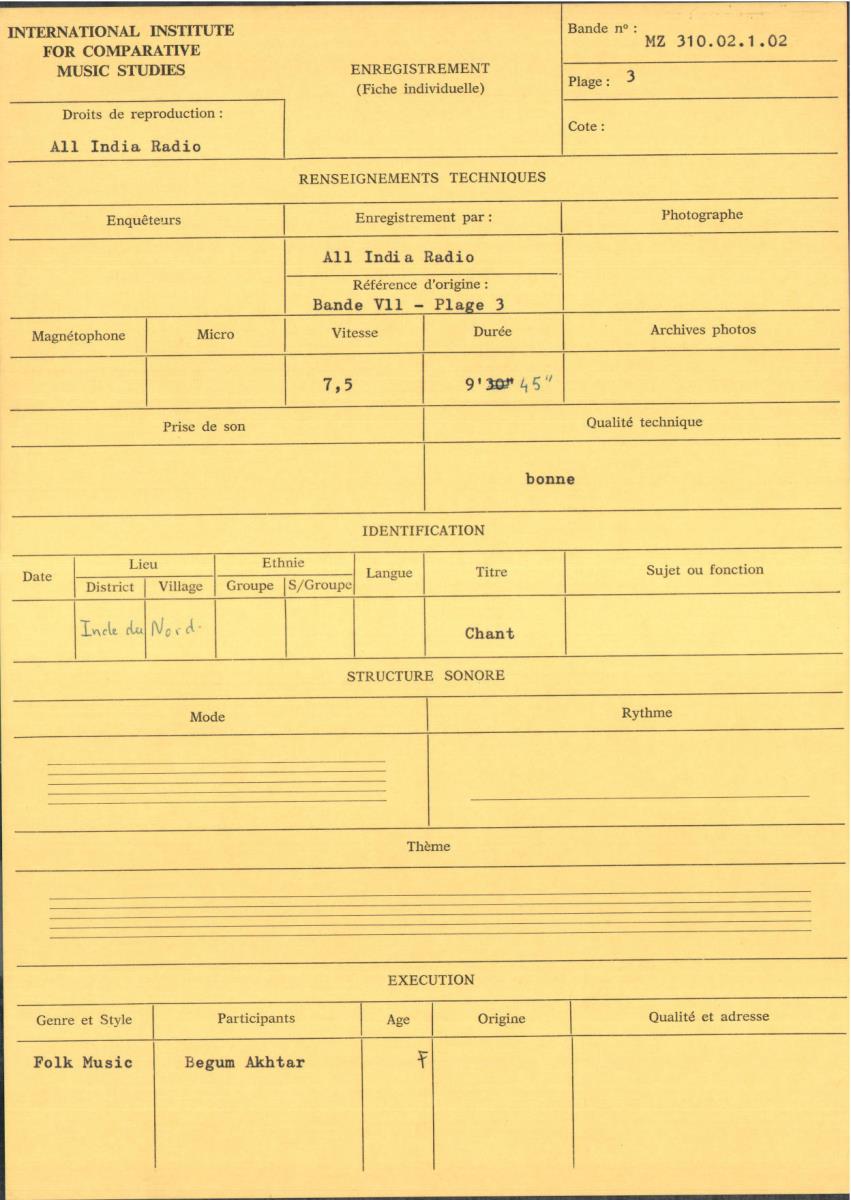 INTERNATIONAL INSTITUTE
FOR COMPARATIVE
MUSIC STUDIES
Droits de reproduction :
All India Radio
ENREGISTREMENT
(Fiche individuelle)
Bande nº : MZ 310.02.1.02
Plage : 3
Cote :
RENSEIGNEMENTS TECHNIQUES
Enquêteurs
Enregistrement par :
Photographe
All India Radio
Référence d'origine :
Bande V11 - Plage 3
Magnétophone
Micro
Vitesse
Durée
Archives photos
7,5
9'30" 45"
Prise de son
Qualité technique
bonne
IDENTIFICATION
Date
Lieu
Ethnie
Langue
Titre
Sujet ou fonction
District
Village
Groupe
S/Groupe
Inde du Nord.
Chant
STRUCTURE SONORE
Mode
Rythme
Thème
EXECUTION
Genre et Style
Participants
Age
Origine
Qualité et adresse
Folk Music
Begum Akhtar
F